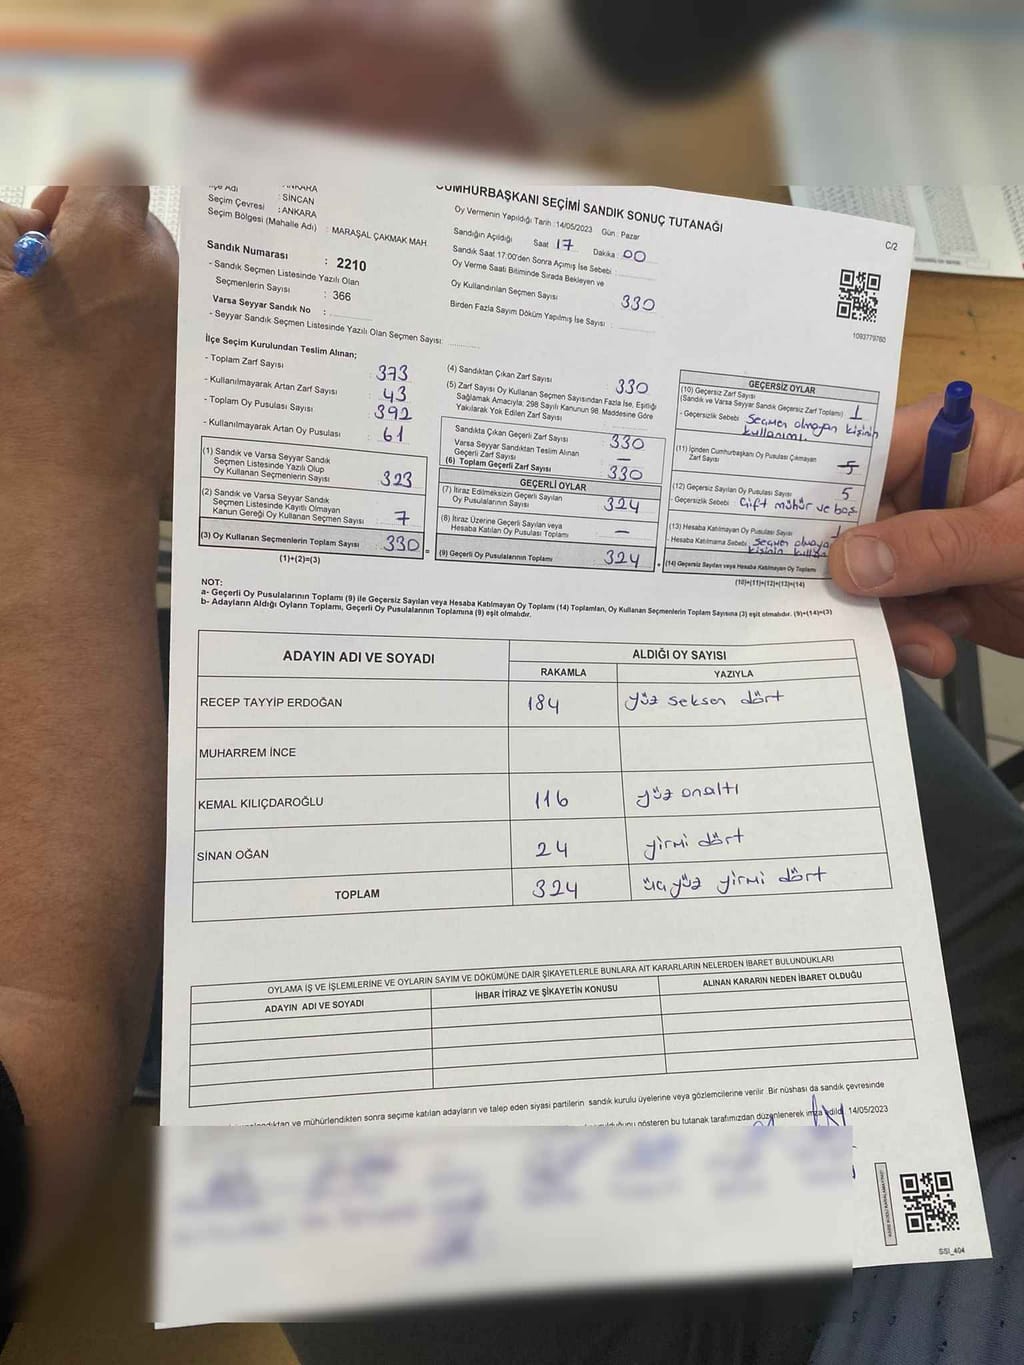 CUMHURBAŞKANI SEÇİMİ SANDIK SONUÇ TUTANAĞI
C/2
: ANKARA
: SİNCAN
Seçim Çevresi : ANKARA
Seçim Bölgesi (Mahalle Adı) : MARAŞAL ÇAKMAK MAH
Sandık Numarası : 2210
- Sandık Seçmen Listesinde Yazılı Olan
Seçmenlerin Sayısı : 366
Varsa Seyyar Sandık No :
- Seyyar Sandık Seçmen Listesinde Yazılı Olan Seçmen Sayısı:
Oy Vermenin Yapıldığı Tarih : 14/05/2023 Gün : Pazar
Sandığın Açıldığı Saat 17 Dakika : 00
Sandık Saat 17:00'den Sonra Açımış İse Sebebi :
Oy Verme Saati Bitiminde Sırada Bekleyen ve
Oy Kullandırılan Seçmen Sayısı 330
Birden Fazla Sayım Döküm Yapılmış İse Sayısı :
1093779760
İlçe Seçim Kurulundan Teslim Alınan;
- Toplam Zarf Sayısı : 373
- Kullanılmayarak Artan Zarf Sayısı : 43
- Toplam Oy Pusulası Sayısı : 392
- Kullanılmayarak Artan Oy Pusulası : 61
(1) Sandık ve Varsa Seyyar Sandık
Seçmen Listesinde Yazılı Olup
Oy Kullanan Seçmenlerin Sayısı 323
(2) Sandık ve Varsa Seyyar Sandık
Seçmen Listesinde Kayıtlı Olmayan
Kanun Gereği Oy Kullanan Seçmen Sayısı 7
(3) Oy Kullanan Seçmenlerin Toplam Sayısı 330
(1)+(2)=(3)
(4) Sandıktan Çıkan Zarf Sayısı : 330
(5) Zarf Sayısı Oy Kullanan Seçmen Sayısından Fazla İse, Eşitliği
Sağlamak Amacıyla; 298 Sayılı Kanunun 98. Maddesine Göre
Yakılarak Yok Edilen Zarf Sayısı
Sandıkta Çıkan Geçerli Zarf Sayısı 330
Varsa Seyyar Sandıktan Teslim Alınan
Geçerli Zarf Sayısı —
(6) Toplam Geçerli Zarf Sayısı 330
GEÇERLİ OYLAR
(7) İtiraz Edilmeksizin Geçerli Sayılan
Oy Pusulalarının Sayısı 324
(8) İtiraz Üzerine Geçerli Sayılan veya
Hesaba Katılan Oy Pusulası Toplamı —
(9) Geçerli Oy Pusulalarının Toplamı 324
GEÇERSİZ OYLAR
(10) Geçersiz Zarf Sayısı
(Sandık ve Varsa Seyyar Sandık Geçersiz Zarf Toplamı) 1
- Geçersizlik Sebebi : Seçmen olmayan kişinin
kullanımı.
(11) İçinden Cumhurbaşkanı Oy Pusulası Çıkmayan
Zarf Sayısı
(12) Geçersiz Sayılan Oy Pusulası Sayısı 5
- Geçersizlik Sebebi : Çift mühür ve boş
(13) Hesaba Katılmayan Oy Pusulası Sayısı
- Hesaba Katılmama Sebebi : Seçmen
kişinin
(14) Geçersiz Sayılan veya Hesaba Katılmayan Oy Toplamı
(10)+(11)+(12)+(13)=(14)
NOT:
a- Geçerli Oy Pusulalarının Toplamı (9) ile Geçersiz Sayılan veya Hesaba Katılmayan Oy Toplamı (14) Toplamları, Oy Kullanan Seçmenlerin Toplam Sayısına (3) eşit olmalıdır. (9)+(14)=(3)
b- Adayların Aldığı Oyların Toplamı, Geçerli Oy Pusulalarının Toplamına (9) eşit olmalıdır.
ADAYIN ADI VE SOYADI
ALDIĞI OY SAYISI
RAKAMLA YAZIYLA
RECEP TAYYİP ERDOĞAN 184 yüz seksen dört
MUHARREM İNCE
KEMAL KILIÇDAROĞLU 116 yüz onaltı
SİNAN OĞAN 24 yirmi dört
TOPLAM 324 üçyüz yirmi dört
OYLAMA İŞ VE İŞLEMLERİNE VE OYLARIN SAYIM VE DÖKÜMÜNE DAİR ŞİKAYETLERLE BUNLARA AİT KARARLARIN NELERDEN İBARET BULUNDUKLARI
ADAYIN ADI VE SOYADI İHBAR İTİRAZ VE ŞİKAYETİN KONUSU ALINAN KARARIN NEDEN İBARET OLDUĞU
ve mühürlendikten sonra seçime katılan adayların ve talep eden siyasi partilerin sandık kurulu üyelerine veya gözlemcilerine verilir. Bir nüshası da sandık çevresinde
gösteren bu tutanak tarafımızdan düzenlenerek imza edildi. 14/05/2023
SSI_404